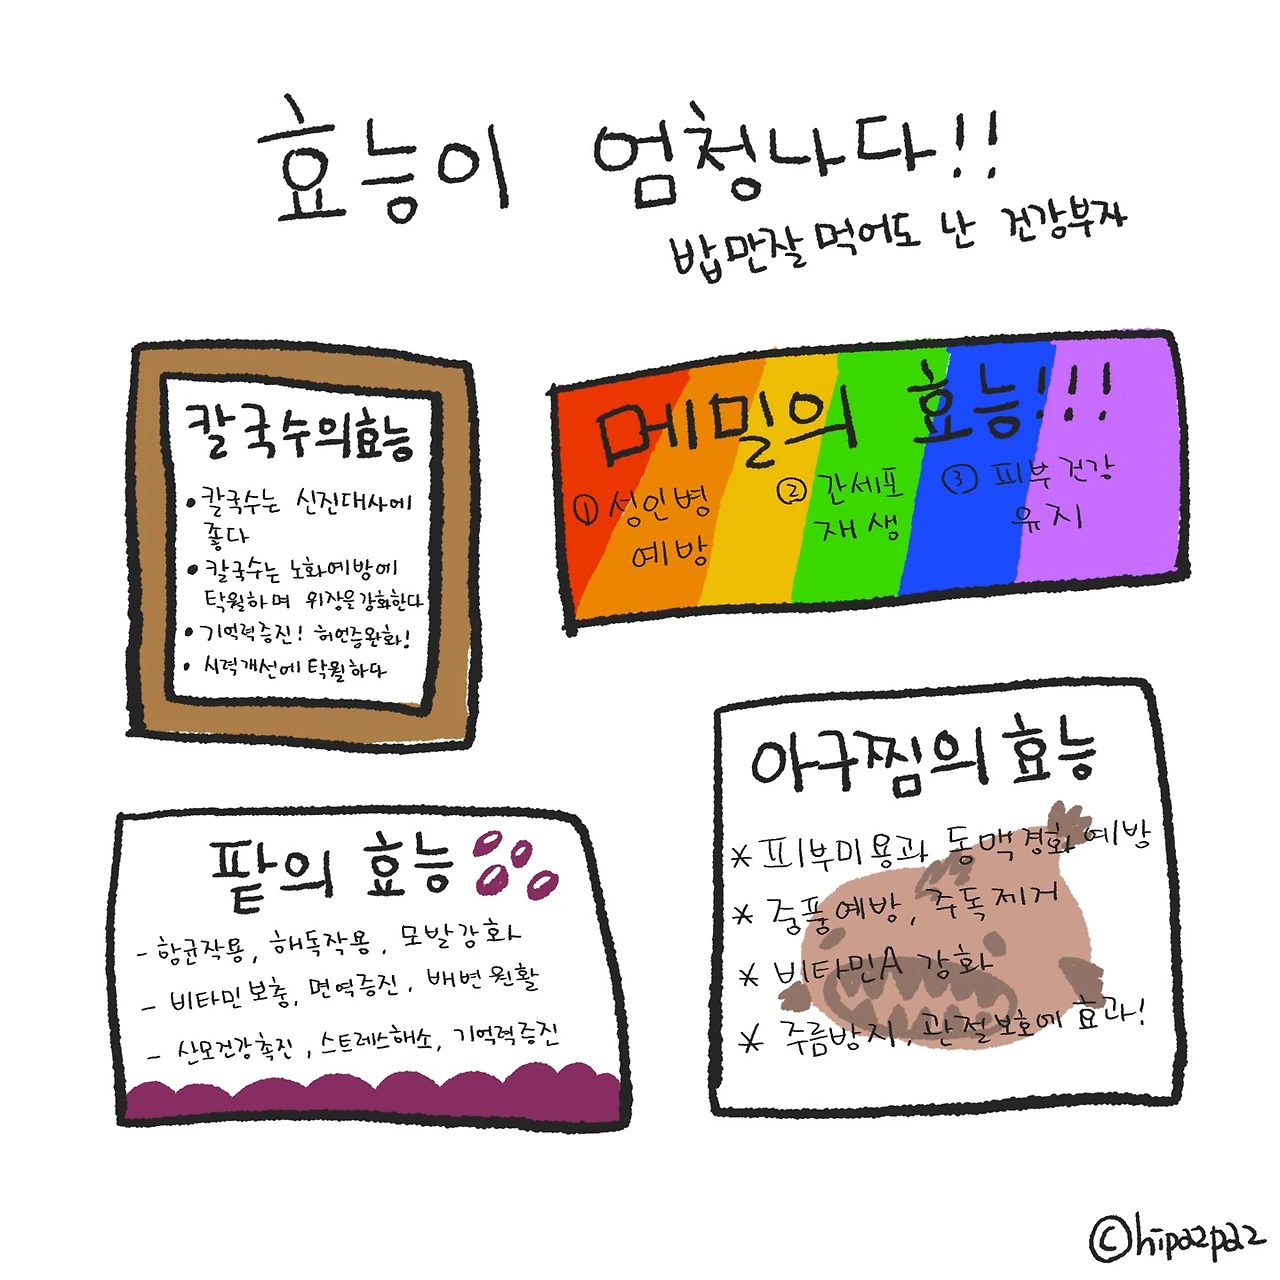 효능이 엄청나다!!
밥만잘먹어도 난 건강부자
칼국수의효능
• 칼국수는 신진대사에
좋다
• 칼국수는 노화예방에
탁월하며 위장을강화한다
• 기억력증진! 허언증완화!
• 시력개선에탁월하다
메밀의 효능!!!
① 성인병
예방
② 간세포
재생
③ 피부건강
유지
팥의 효능
- 항균작용, 해독작용, 모발강화
- 비타민보충, 면역증진, 배변원활
- 산모건강촉진, 스트레스해소, 기억력증진
아구찜의효능
* 피부미용과 동맥경화예방
* 중풍예방, 주독제거
* 비타민A 강화
* 주름방지, 관절보호에 효과!
©hipa2pa2